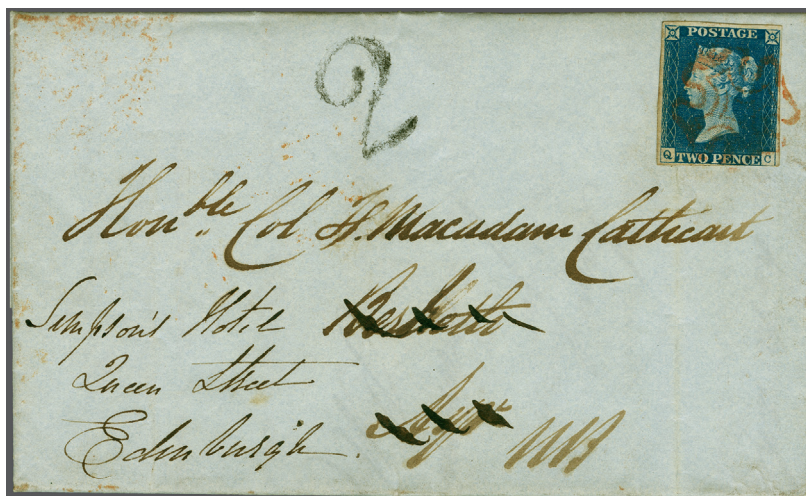 POSTAGE
2
Q C
TWO PENCE
Honble. Col F. Macadam Cathcart
Simpson's Hotel
Queen Street
Edinburgh. NB